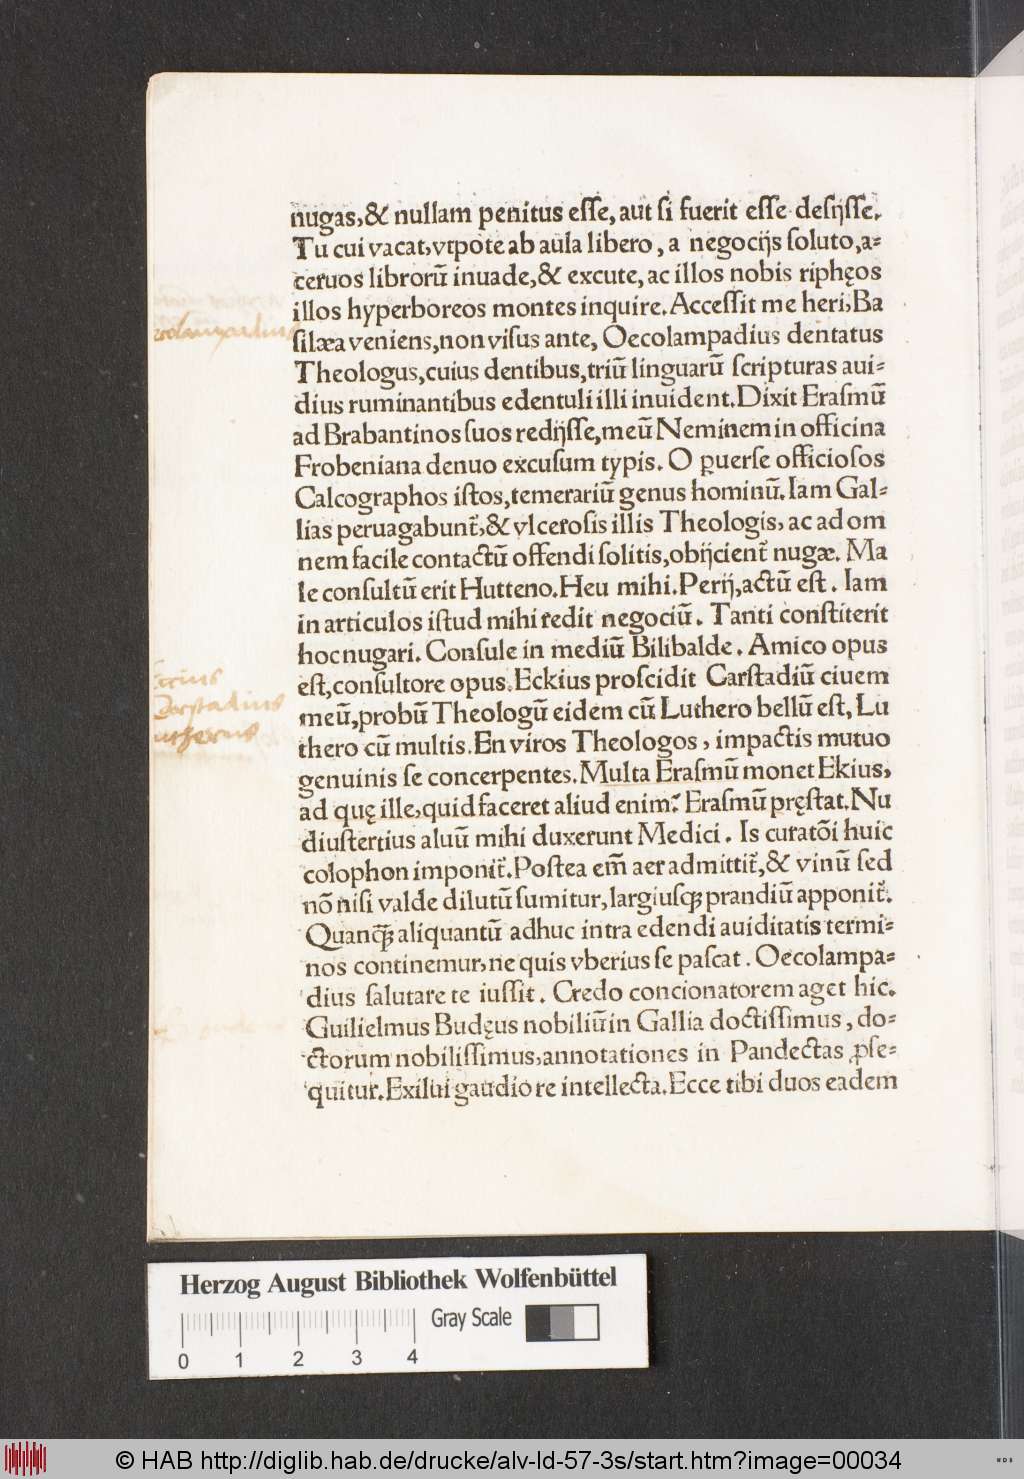 nugas,& nullam penitus eſſe, aut ſi fuerit eſſe deſijſſe.
Tu cui vacat, vtpote ab aula libero, a negocijs ſoluto, a=
ceruos librorū inuade,& excute, ac illos nobis riphęos
illos hyperboreos montes inquire. Acceſſit me heri, Ba
ſilæa veniens, non viſus ante, Oecolampadius dentatus
Theologus, cuius dentibus, triū linguarū ſcripturas aui=
dius ruminantibus edentuli illi inuident. Dixit Eraſmū
ad Brabantinos ſuos redijſſe, meū Neminem in officina
Frobeniana denuo excuſum typis. O ꝑuerſe officioſos
Calcographos iſtos, temerariū genus hominū. Iam Gal=
lias peruagabunt̄,& vlceroſis illis Theologis, ac ad om
nem facile contactū offendi ſolitis, obijcient̄ nugæ. Ma
le conſultū erit Hutteno. Heu mihi. Perij, actū eſt. Iam
in articulos iſtud mihi redit negociū. Tanti conſtiterit
hoc nugari. Conſule in mediū Bilibalde. Amico opus
eſt, conſultore opus. Eckius proſcidit Carſtadiū ciuem
meū, probū Theologū eidem cū Luthero bellū eſt, Lu
thero cū multis. En viros Theologos, impactis mutuo
genuinis ſe concerpentes. Multa Eraſmū monet Ekius,
ad quę ille, quid faceret aliud enim? Eraſmū pręſtat. Nu
diuſtertius aluū mihi duxerunt Medici. Is curatōi huic
colophon imponit̄. Poſtea em̄ aer admittit̄,& vinū ſed
nō niſi valde dilutū ſumitur, largiuſqꝫ prandiū apponit̄.
Quanqꝫ̄ aliquantū adhuc intra edendi auiditatis termi=
nos continemur, ne quis vberius ſe paſcat. Oecolampa=
dius ſalutare te iuſſit. Credo concionatorem aget hic.
Guilielmus Budęus nobiliū in Gallia doctiſſimus, do=
ctorum nobiliſſimus, annotationes in Pandectas ꝓſe=
quitur. Exilui gaudio re intellecta. Ecce tibi duos eadem
colampadius
Eccius
Carſtadius
utherus
Herzog August Bibliothek Wolfenbüttel
Gray Scale
0 1 2 3 4
© HAB http://diglib.hab.de/drucke/alv-ld-57-3s/start.htm?image=00034